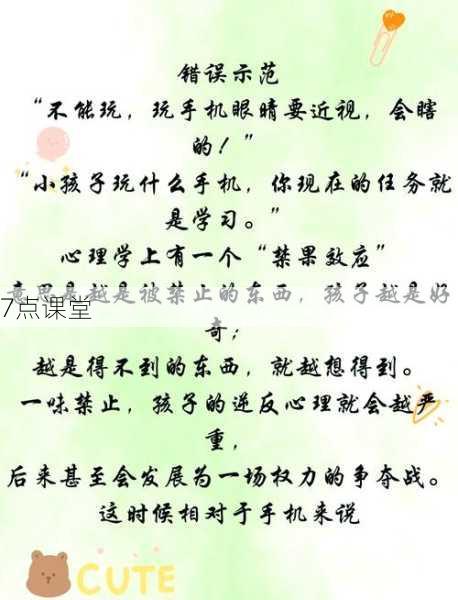 错误示范
“不能玩，玩手机眼睛要近视，会瞎
的！”
“小孩子玩什么手机，你现在的任务就
是学习。”
心理学上有一个“禁果效应”
意思是越是被禁止的东西，孩子越是好
7点课堂
奇；
越是得不到的东西，就越想得到。
一味禁止，孩子的逆反心理就会越严
重，
后来甚至会发展为一场权力的争夺战。
这时候相对于手机来说
CUTE